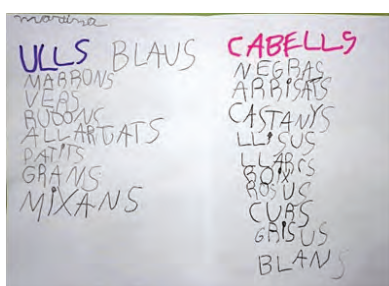 martina
ULLS BLAUS
MARRONS
VERS
RUDONS
ALLARGATS
PATITS
GRANS
MIXANS
CABELLS
NEGRAS
ARRISATS
CASTANYS
LLISUS
LLARCS
ROSUS
CURS
GRISUS
BLANS